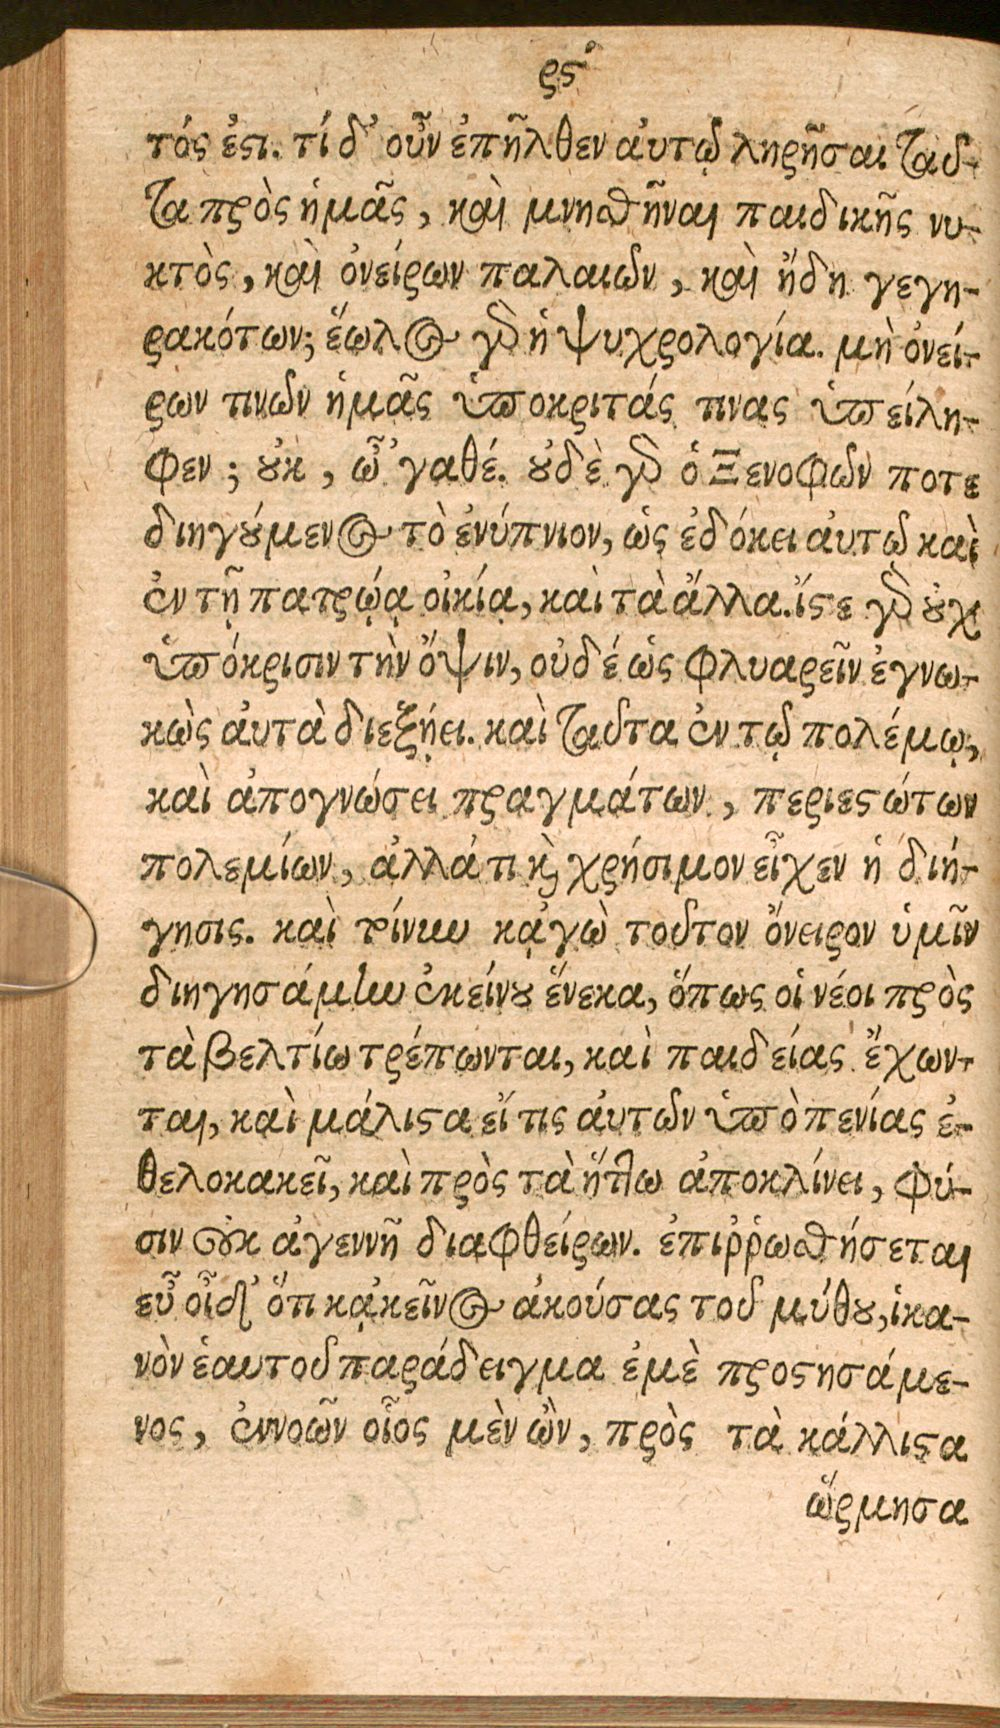 ρϛʹ
τός ἐϛι. τί δ' οὖν ἐπῆλθεν αὐτῷ ληρῆσαι ταῦ-
τα πρὸς ἡμᾶς, καὶ μνησθῆναι παιδικῆς νυ-
κτὸς, καὶ ὀνείρων παλαιῶν, καὶ ἤδη γεγη-
ρακότων; ἕωλος γὰρ ἡ ψυχρολογία. μὴ ὀνεί-
ρων τινῶν ἡμᾶς ὑποκριτάς τινας ὑπείλη-
φεν; ȣ̓κ, ὦ 'γαθέ. ȣ̓δὲ γὰρ ὁ Ξενοφῶν ποτε
διηγȣ́μενος τὸ ἐνύπνιον, ὡς ἐδόκει αὐτῷ καὶ
ἐν τῇ πατρῴᾳ οἰκίᾳ, καὶ τὰ ἄλλα. ἴϛε γὰρ ȣ̓χ
ὑπόκρισιν τὴν ὄψιν, οὐδέ ὡς φλυαρεῖν ἐγνω-
κὼς ἀυτὰ διεξῄει. καὶ ταῦτα ἐν τῷ πολέμῳ,
καὶ ἀπογνώσει πραγμάτων, περιεϛώτων
πολεμίων, ἀλλά τι κ̀ χρήσιμον εἶχεν ἡ διή-
γησις. καὶ τοίνυν κᾀγὼ τοῦτον ὄνειρον ὑμῖν
διηγησάμην ἐκείνȣ ἕνεκα, ὅπως οἱ νέοι πρὸς
τὰ βελτίω τρέπωνται, καὶ παιδείας ἔχων-
ται, καὶ μάλιϛα εἴ τις ἀυτῶν ὑπὸ πενίας ἐ-
θελοκακεῖ, καὶ πρὸς τὰ ἥττω ἀποκλίνει, φύ-
σιν οὐκ ἀγεννῆ διαφθείρων. ἐπιῤῥωσθήσεται
εὖ οἶδ' ὅτι κᾀκεῖνος ἀκούσας τοῦ μύθȣ, ἱκα-
νὸν ἑαυτοῦ παράδειγμα ἐμὲ προϛησάμε-
νος, ἐννοῶν οἷος μὲν ὢν, πρὸς τὰ κάλλιϛα
ὥρμησα